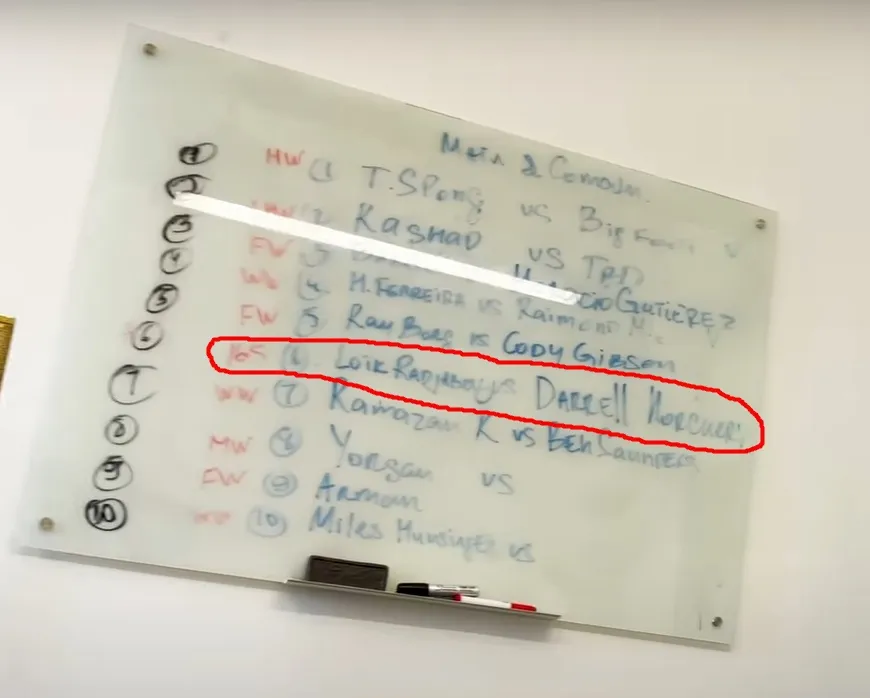 Main & Comain
① HW ① T.SPong vs Big
② 2 RASHAD vs TBD
③ FW 3 GUTIÉREZ
④ ④ M.FERREIRA vs Raimond M.
⑤ FW ⑤ Ray Borg vs CODY GIBSON
⑥ 165 ⑥ Loik Radjabov vs DARRELL HORCHER
⑦ WW ⑦ Ramazan K vs BEN SAUNDERS
⑧ MW ⑧ Yorgan vs
⑨ FW ⑨ Arman
⑩ ⑩ Miles Hunsinger vs